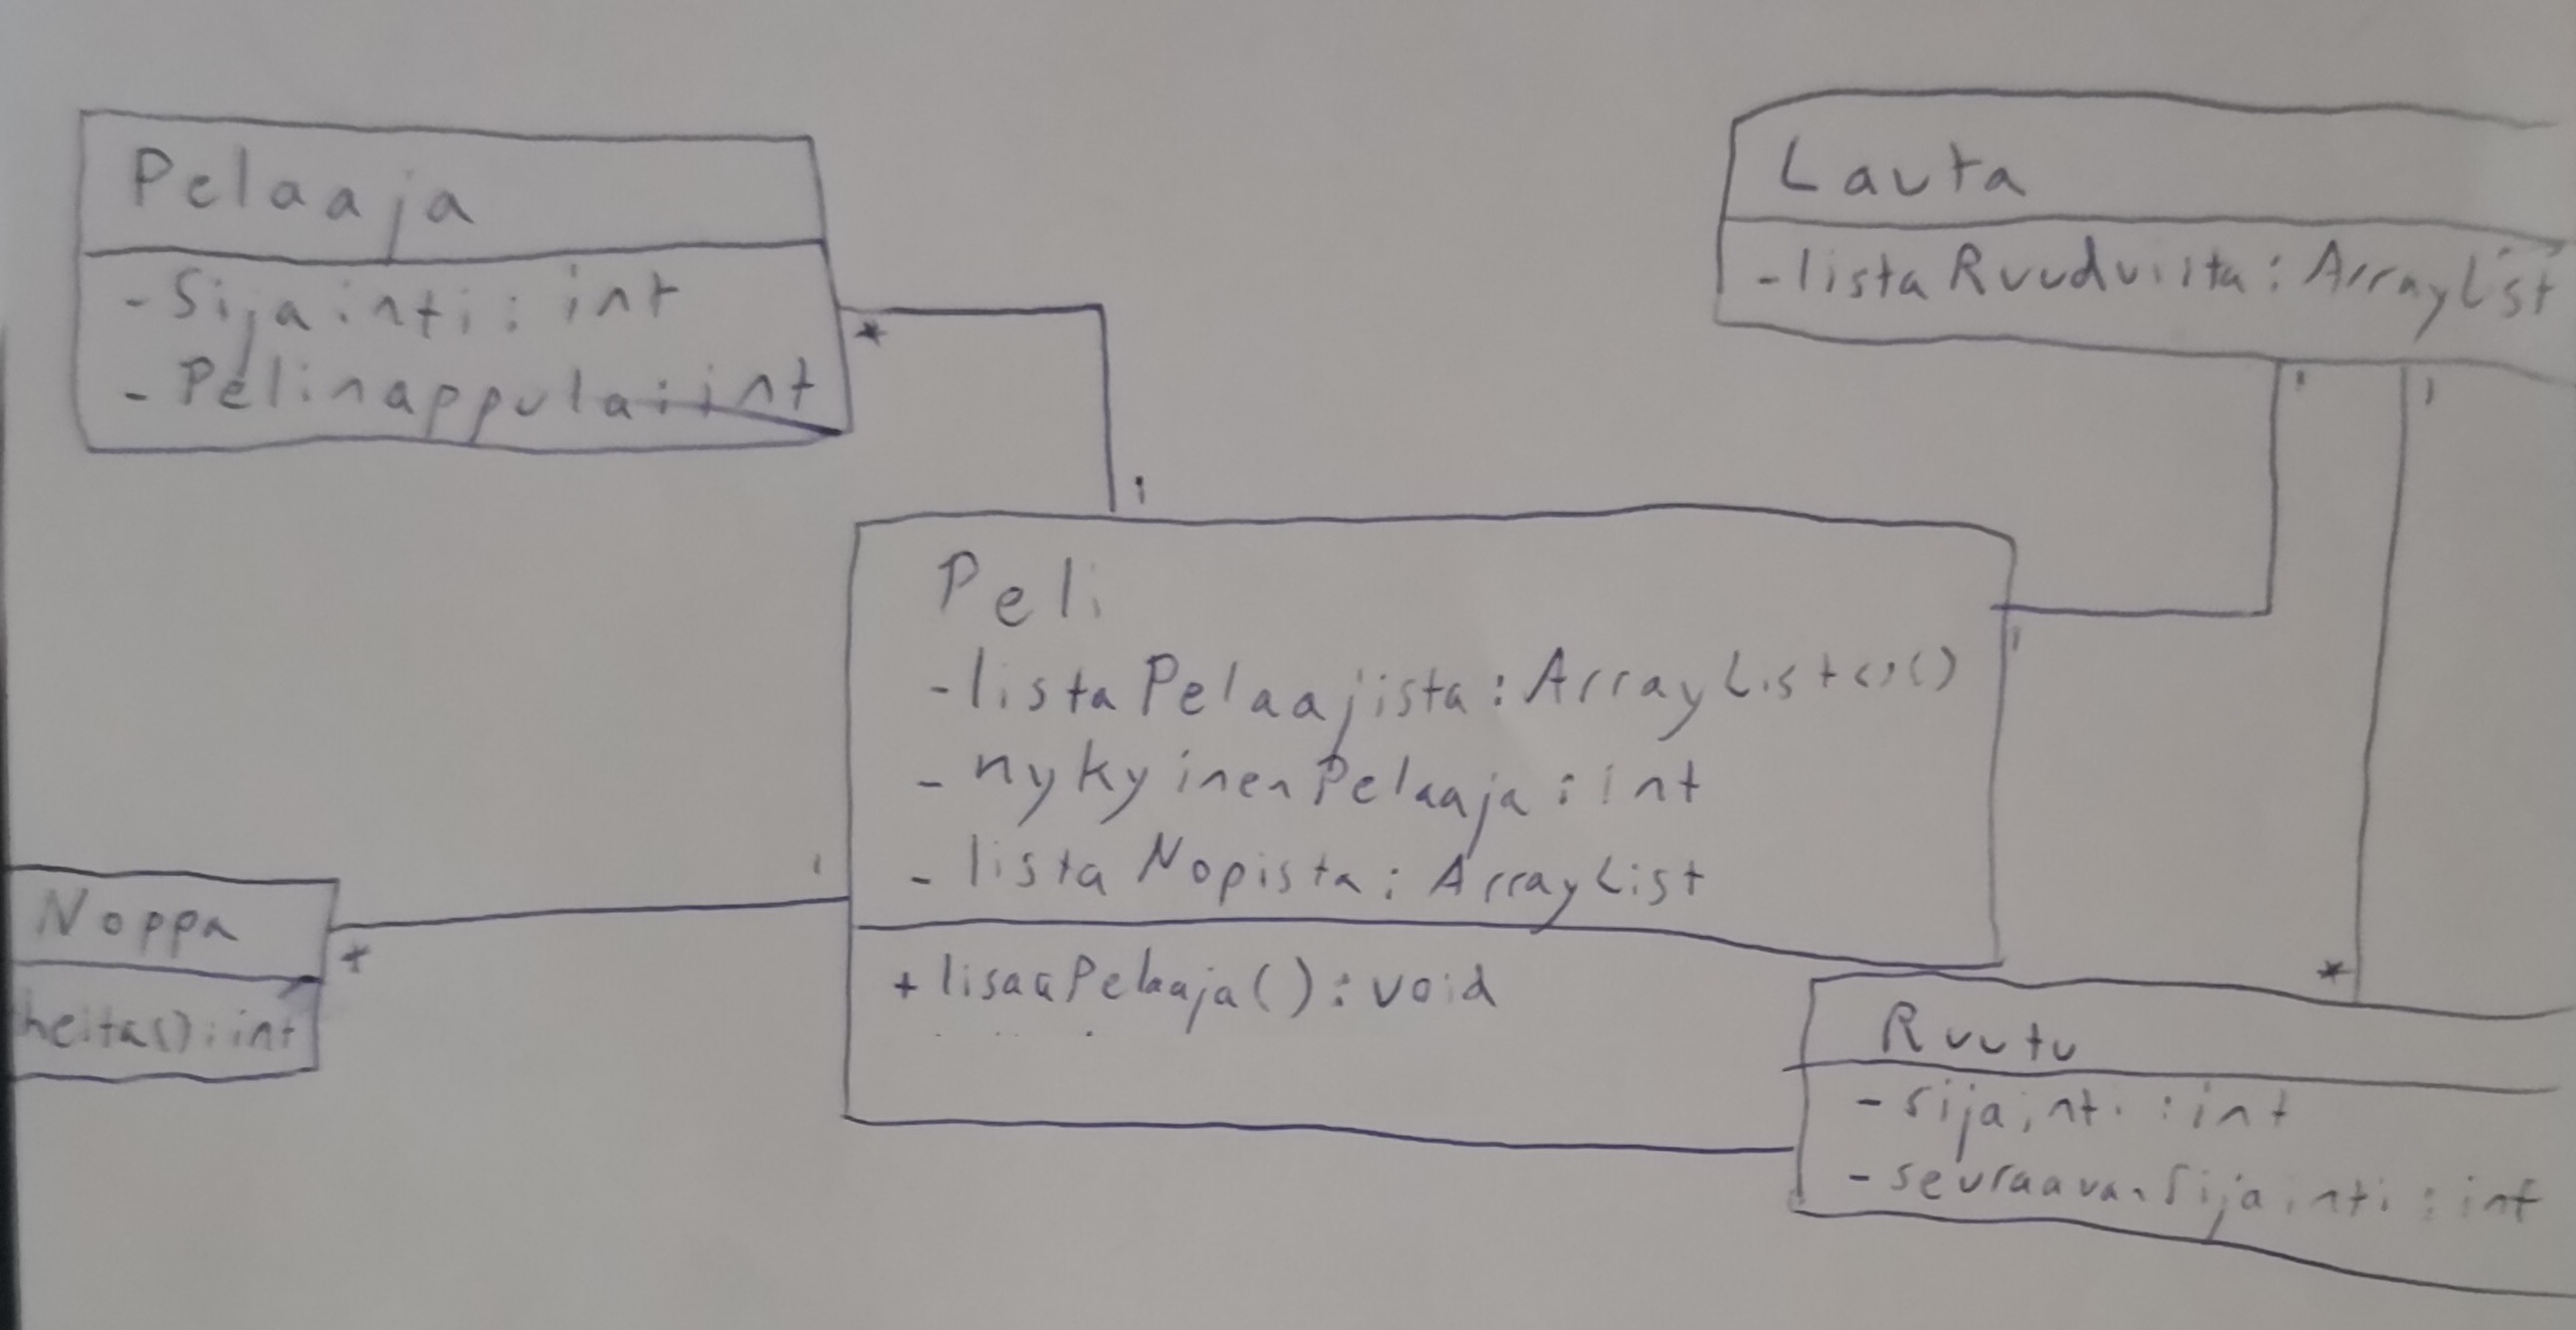 Pelaaja
- Sijainti : int
- Pelinappula : int
*
1
Lauta
- listaRuuduista : ArrayList
1
1
Peli
- listaPelaajista : ArrayList<>()
- nykyinenPelaaja : int
- listaNopista : ArrayList
+ lisaaPelaaja() : void
1
1
Noppa
heita() : int
*
*
Ruutu
- sijainti : int
- seuraavaSijainti : int